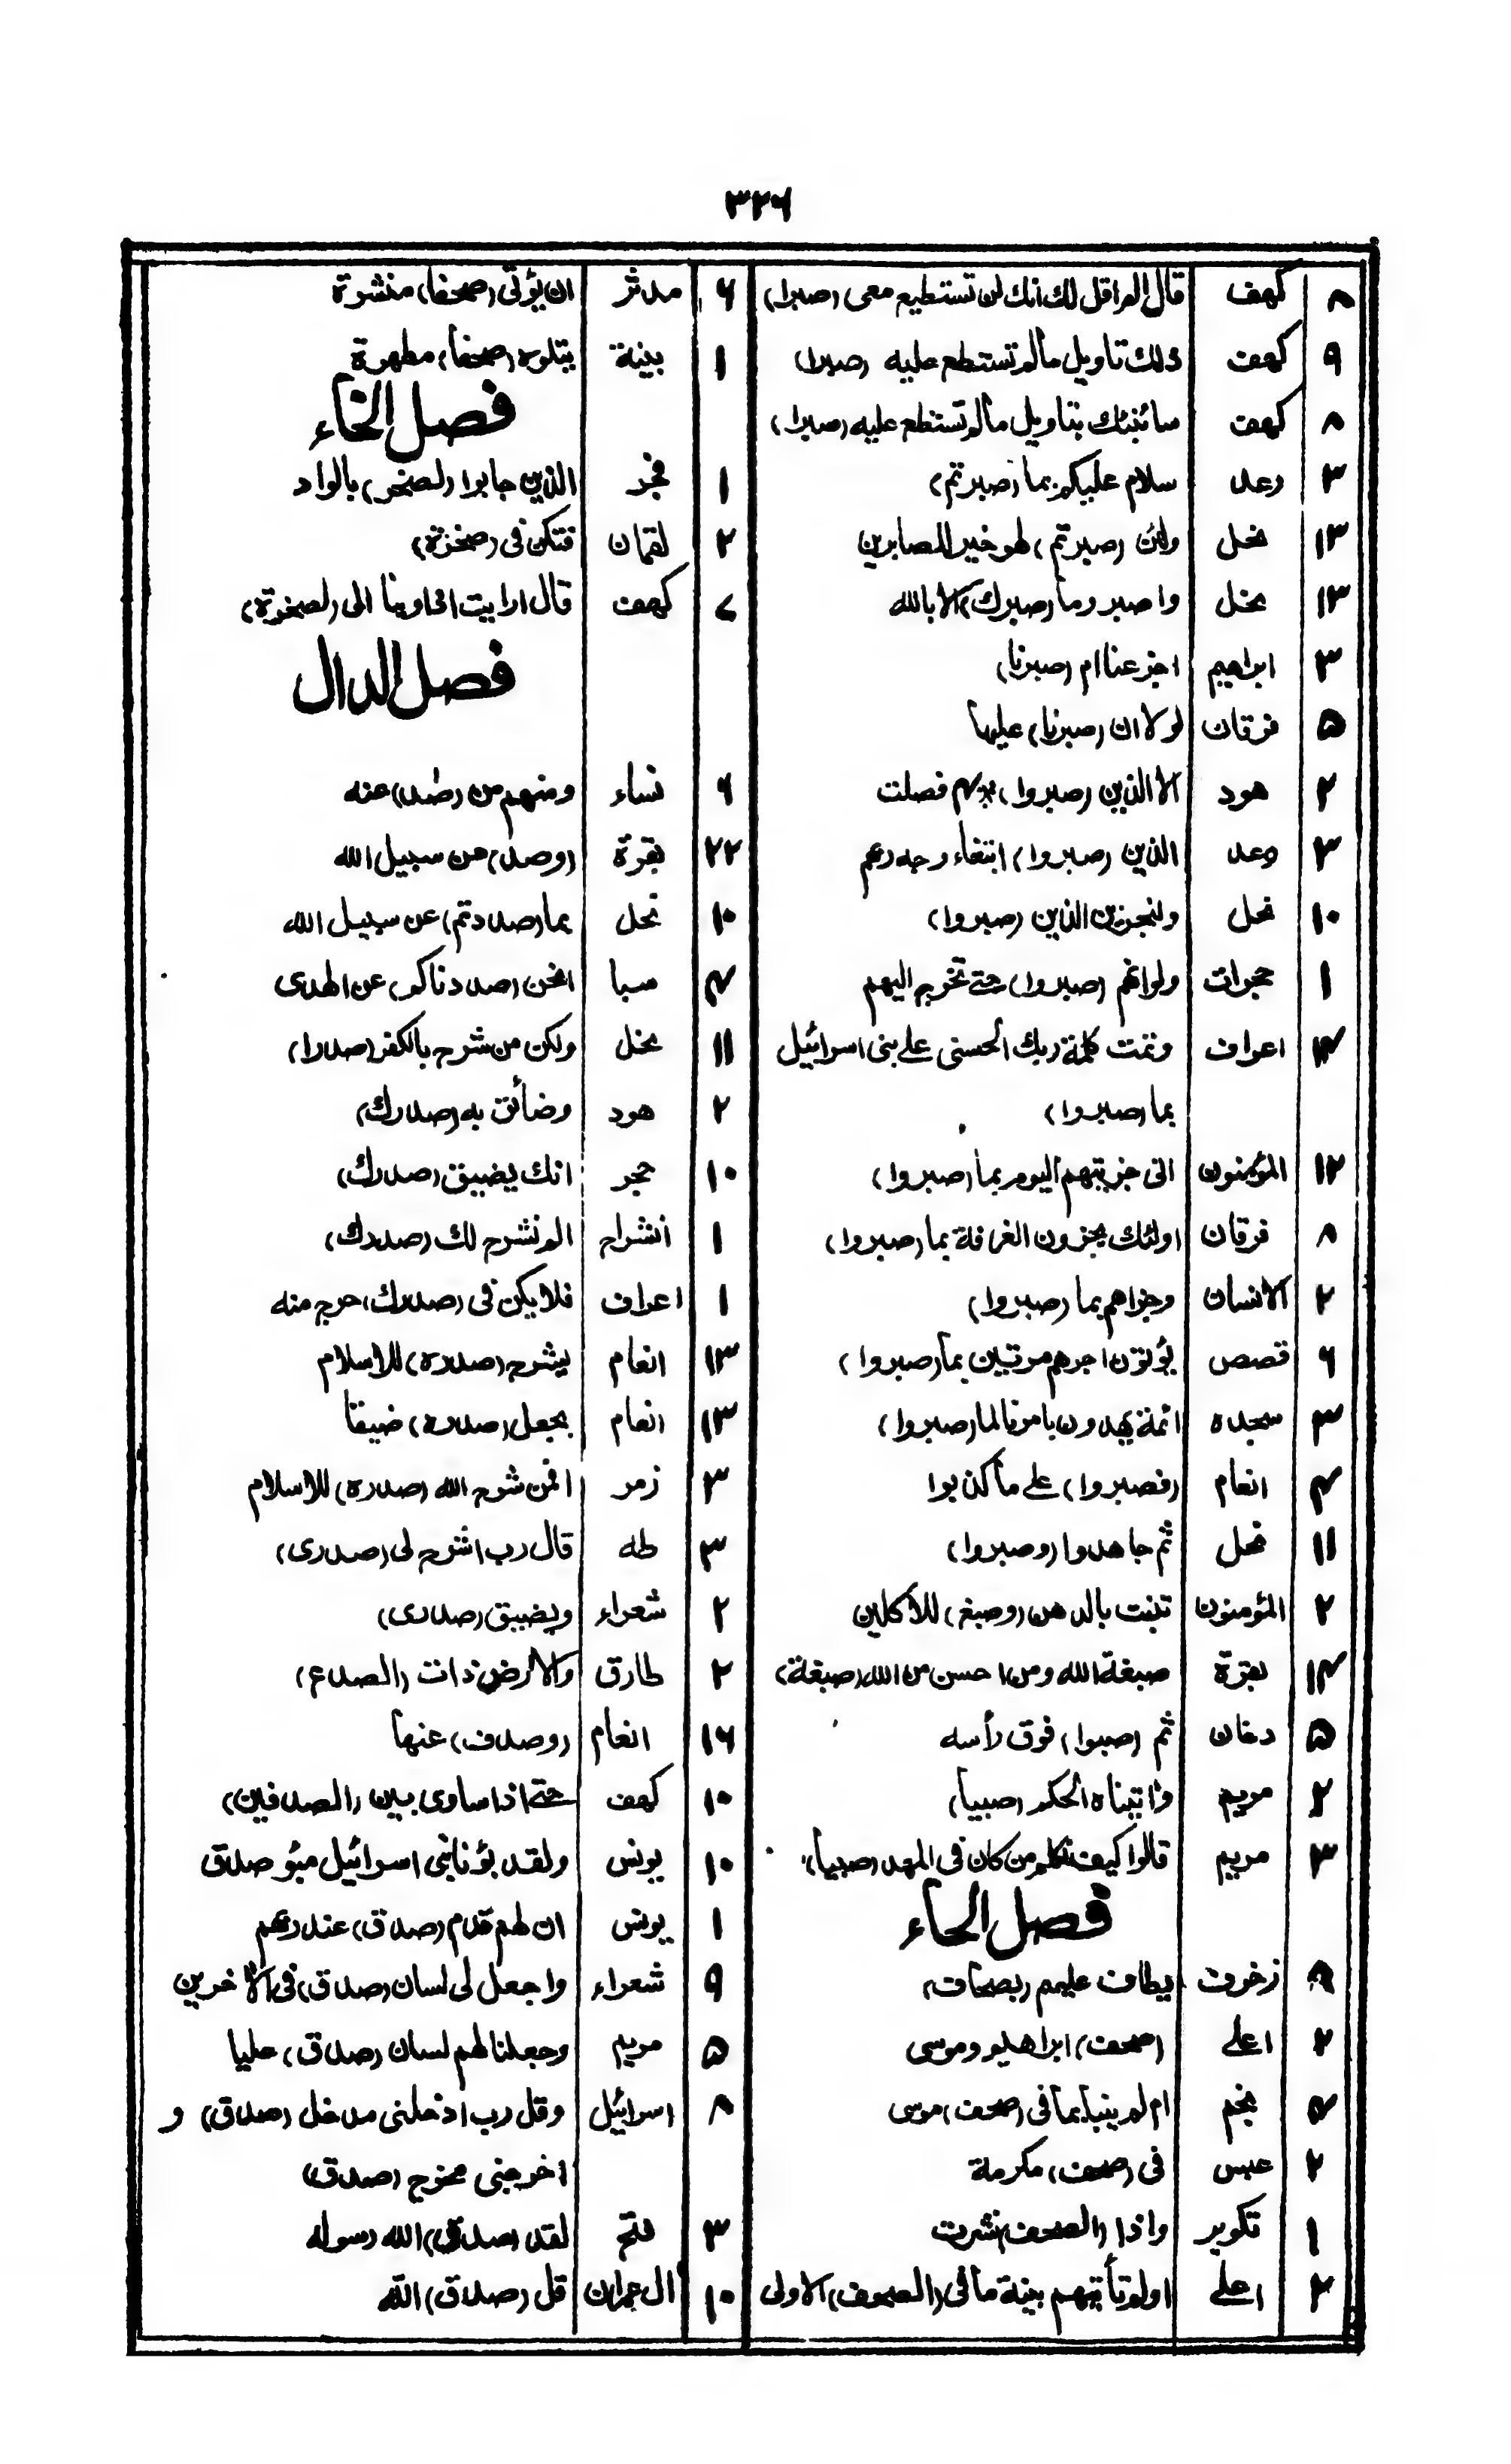 ٣٢٦
٨ كهف قال الم اقل لك انك لن تستطيع معى (صبرا)
٩ كهف ذلك تاويل مالم تستطع عليه (صبرا)
٨ كهف سائنبئك بتاويل مالم تستطع عليه (صبرا)
٣ رعد سلام عليكم بما (صبرتم)
١٣ نحل ولئن (صبرتم) لهو خير للصابرين
١٣ نحل واصبر وما (صبرك) الا بالله
٣ ابراهيم اجزعنا ام (صبرنا)
٥ فرقان لولا ان (صبرنا) عليها
٢ هود الا الذين (صبروا) فصلت
٣ رعد الذين (صبروا) ابتغاء وجه ربهم
١٠ نحل ولنجزين الذين (صبروا)
١ حجرات ولو انهم (صبروا) حتى تخرج اليهم
١٤ اعراف وتمت كلمة ربك الحسنى على بنى اسرائيل
بما (صبروا)
١٢ المؤمنون انى جزيتهم اليوم بما (صبروا)
٨ فرقان اولئك يجزون الغرفة بما (صبروا)
٢ الانسان وجزاهم بما (صبروا)
٦ قصص يؤتون اجرهم مرتين بما (صبروا)
٣ سجده ائمة يهدون بامرنا لما (صبروا)
٤ انعام (فصبروا) على ما كذبوا
١١ نحل ثم جاهدوا (وصبروا)
٢ المؤمنون تنبت بالدهن (وصبغ) للآكلين
١٤ بقرة صبغة الله ومن احسن من الله (صبغة)
٥ دخان ثم (صبوا) فوق رأسه
٢ مريم واتيناه الحكم (صبيا)
٣ مريم قالوا كيف نكلم من كان فى المهد (صبيا)
فصل الحاء
٨ زخرف يطاف عليهم (بصحاف)
٢ اعلى (صحف) ابراهيم وموسى
٤ نجم ام لم ينبأ بما فى (صحف) موسى
٢ عبس فى (صحف) مكرمة
١ تكوير واذا (الصحف) نشرت
٢ اعلى اولم تأتيهم بينة ما فى (الصحف) الاولى
٦ مدثر ان يؤتى (صحفا) منشرة
١ بينة يتلوه (صحفا) مطهرة
فصل الخاء
١ فجر الذين جابوا (الصخر) بالواد
٢ لقمان فتكن فى (صخرة)
٧ كهف قال ارايت اذ اوينا الى (الصخرة)
فصل الدال
٦ نساء ومنهم من (صد) عنه
٢٢ بقرة (وصد) عن سبيل الله
١٠ نحل بما (صددتم) عن سبيل الله
٤ سبا انحن (صددناكم) عن الهدى
١١ نحل ولكن من شرح بالكفر (صدرا)
٢ هود وضائق به (صدرك)
١٠ حجر انك يضيق (صدرك)
١ انشراح الم نشرح لك (صدرك)
١ اعراف فلا يكن فى (صدرك) حرج منه
١٣ انعام ليشرح (صدره) للاسلام
١٣ انعام يجعل (صدره) ضيقا
٣ زمر افمن شرح الله (صدره) للاسلام
٣ طه قال رب اشرح لى (صدرى)
٢ شعراء ويضيق (صدرى)
٢ طارق والارض ذات (الصدع)
١٦ انعام (وصدف) عنها
١٠ كهف حتى اذا ساوى بين (الصدفين)
١٠ يونس ولقد بؤنا بنى اسرائيل مبؤ صدق
١ يونس ان لهم قدم (صدق) عند ربهم
٩ شعراء واجعل لى لسان (صدق) فى الآخرين
٥ مريم وجعلنا لهم لسان (صدق) عليا
٨ اسرائيل وقل رب ادخلنى مدخل (صدق) و
اخرجنى مخرج (صدق)
٣ فتح لقد (صدق) الله رسوله
١٠ ال عمران قل (صدق) الله